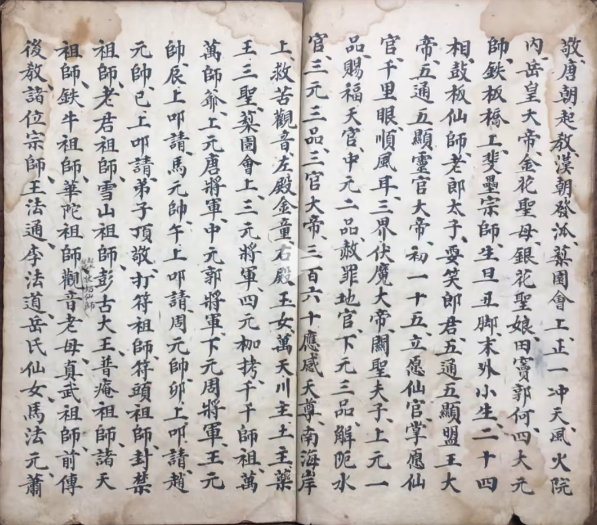 敬唐朝起教漢朝發派蔾園會上正一冲天風火院
內岳皇大帝金花聖母銀花聖娘田竇郭何四大元
帥鉄板橋上斐曇宗師生旦丑脚末外小生二十四
相鼓板仙師老郎太子耍笑郎君五通五顯盟王大
帝五通五顯靈官大帝初一十五立愿仙官掌愿仙
官千里眼順風耳三界伏魔大帝關聖夫子上元一
品賜福天官中元二品赦罪地官下元三品解阨水
官三元三品三官大帝三百六十應感天尊南海岸
上救苦觀音左殿金童右殿玉女萬天川主土主藥
王三聖蔾園會上三元將軍四元枷拷千千師祖萬
萬師爺上元唐將軍中元郭將軍下元周將軍王元
帥辰上叩請馬元帥午上叩請周元帥卯上叩請趙
元帥巳上叩請弟子頂敬打符祖師符頭祖師封禁
祖師老君祖師雪山祖師彭古大王普庵祖師諸天
祖師鉄牛祖師華陀祖師觀音老母真武祖師前傳
後教諸位宗師王法通李法道岳氏仙女馬法元蕭